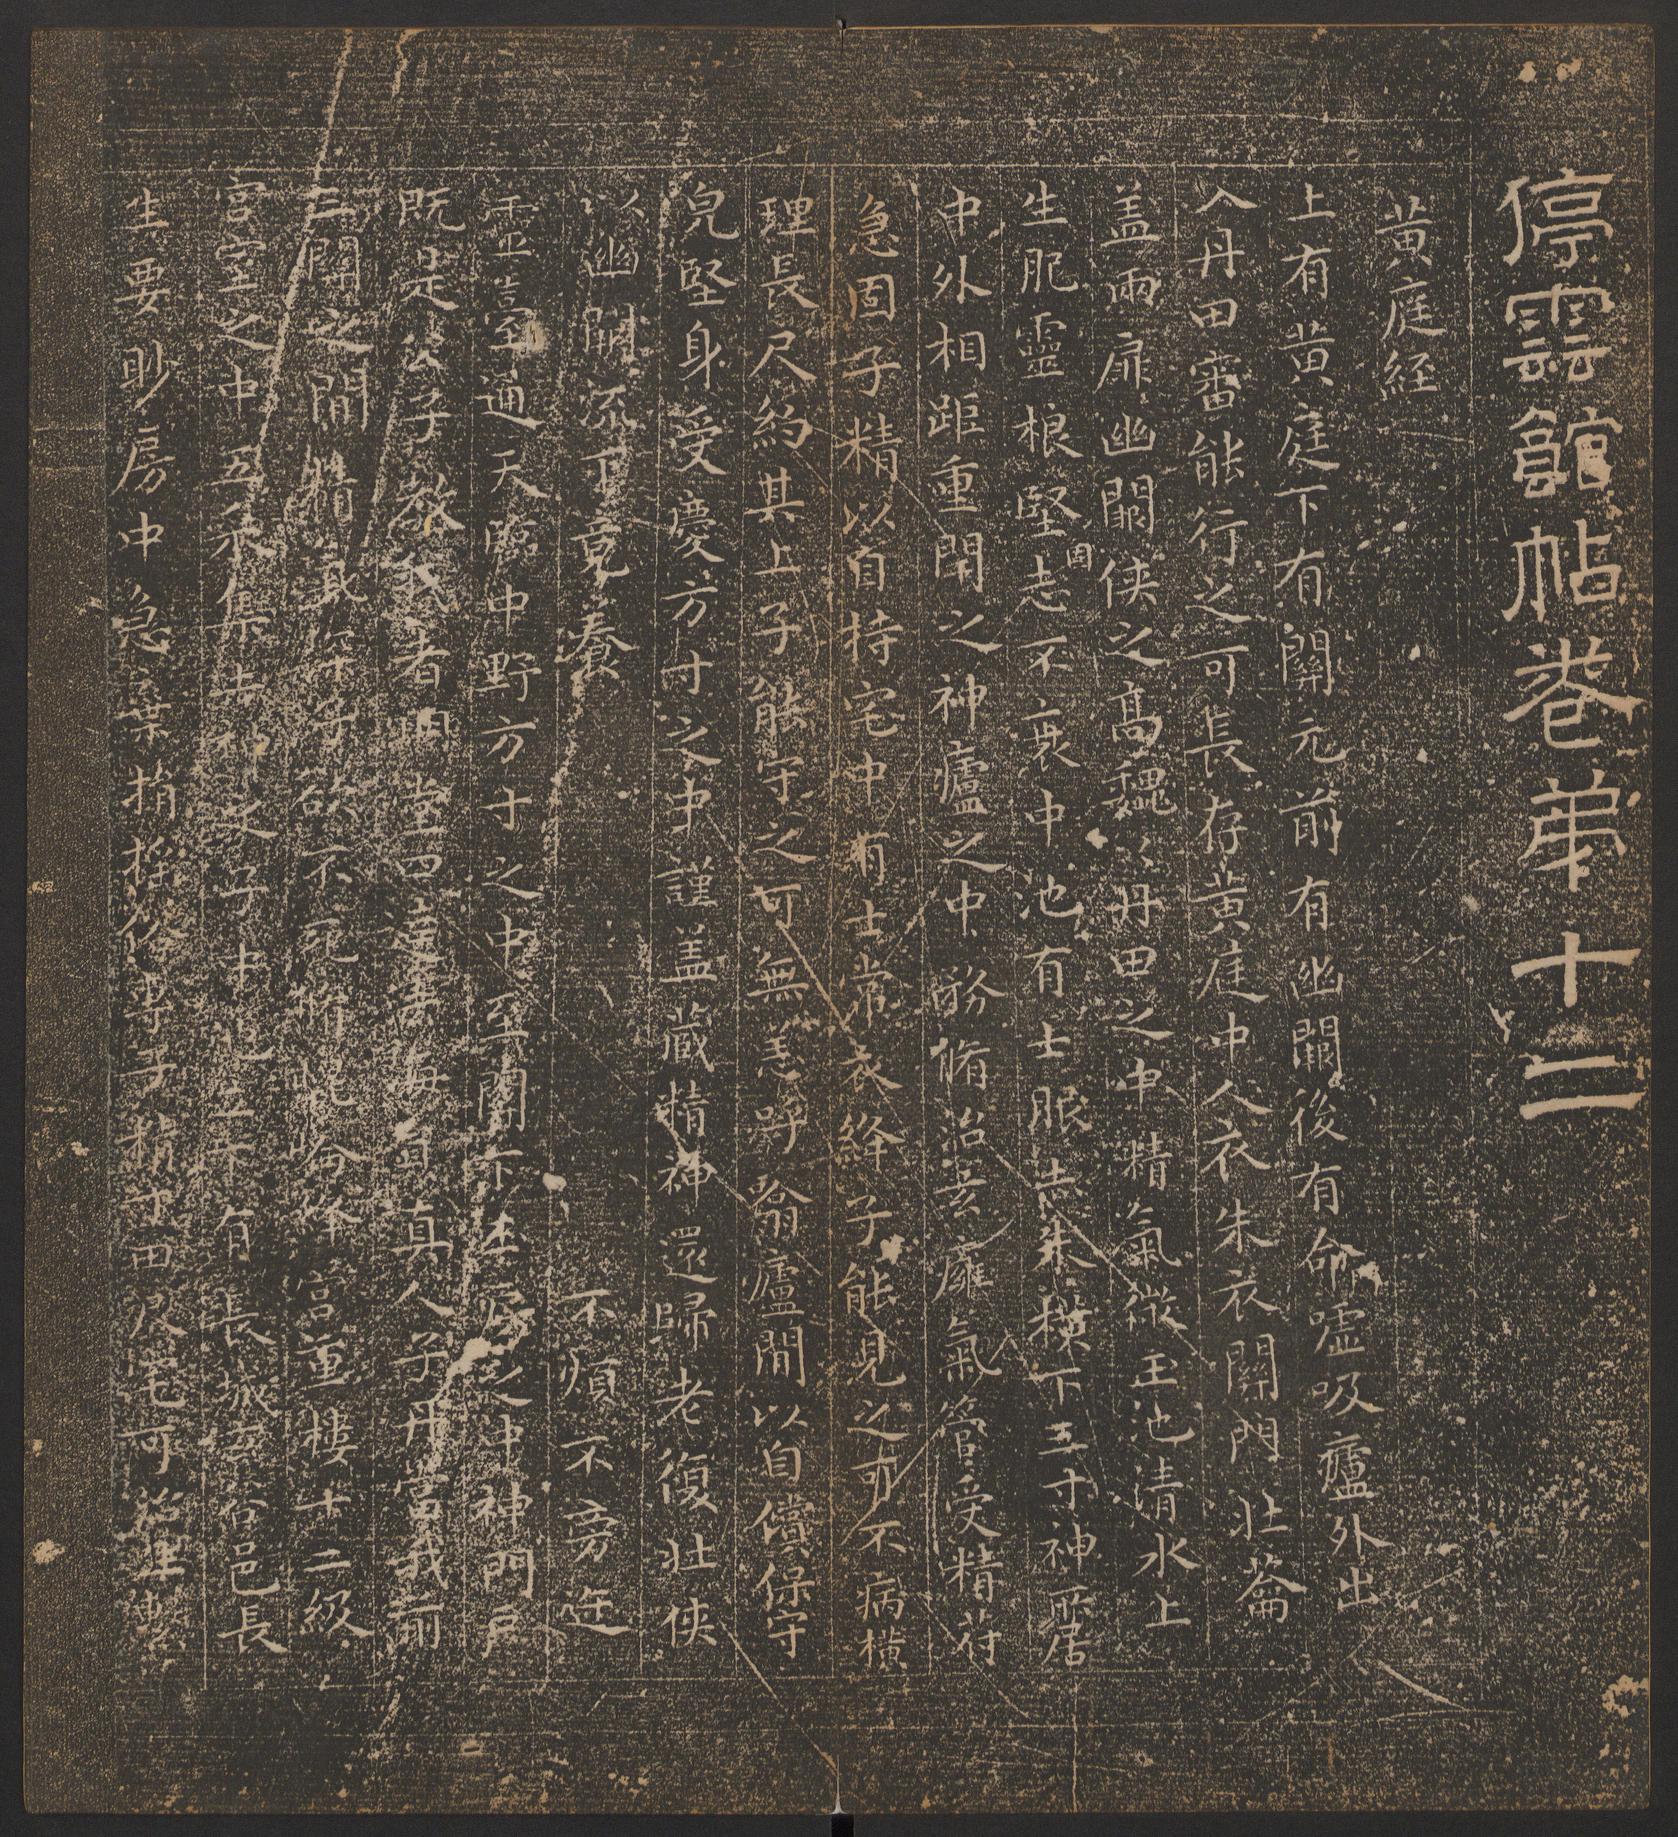 停雲館帖卷第十二
黃庭経
上有黃庭下有關元前有幽闕後有命噓吸廬外出
入丹田審能行之可長存黃庭中人衣朱衣關門壯蘥
盖兩扉幽闕俠之高巍巍丹田之中精氣微玉池清水上
生肥靈根堅固志不衰中池有士服赤朱橫下三寸神所居
中外相距重閉之神廬之中務脩治玄廱氣管受精符
急固子精以自持宅中有士常衣絳子能見之可不病橫
理長尺約其上子能守之可無恙呼翕廬間以自償保守
皃堅身受慶方寸之中謹盖藏精神還歸老復壯俠
以幽闕流下竟養 不煩不旁迮
靈臺通天臨中野方寸之中至關下 房之中神門戶
既是公子教我者明堂四達法海員真人子丹當我前
三關之間精氣深子欲不死脩崑崙絳宮重樓十二級
宮室之中五采集赤神之子中池立下有長城玄谷邑長
生要眇房中急棄捐 俗專子精寸田尺宅可治生